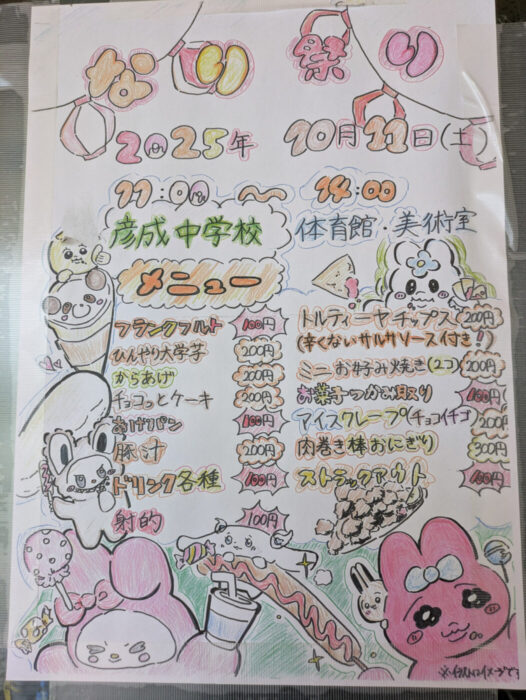 なり祭り
2025年 10月11日(土)
11:00 〜 14:00
彦成中学校 体育館・美術室
メニュー
フランクフルト 100円
ひんやり大学芋 200円
からあげ 200円
チョコっとケーキ 200円
あげパン 100円
豚汁 200円
ドリンク各種 100円
射的 100円
トルティーヤチップス 200円
(辛くないサルサソース付き!)
ミニお好み焼き(2コ) 200円
お菓子つかみ取り 100円
アイスクレープ(チョコイチゴ 200円
肉巻き棒おにぎり 300円
ストラックアウト 100円
※イラストはイメージです